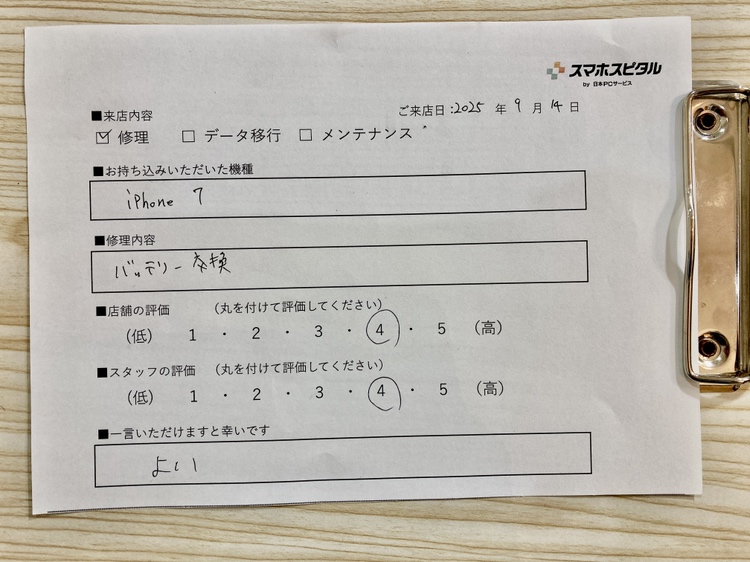 スマホスピタル
by 日本PCサービス
ご来店日:2025 年 9 月 14 日
■来店内容
☑ 修理 □ データ移行 □ メンテナンス
■お持ち込みいただいた機種
iPhone 7
■修理内容
バッテリー交換
■店舗の評価 (丸を付けて評価してください)
(低) 1 ・ 2 ・ 3 ・ 4 ・ 5 (高)
■スタッフの評価 (丸を付けて評価してください)
(低) 1 ・ 2 ・ 3 ・ 4 ・ 5 (高)
■一言いただけますと幸いです
よい